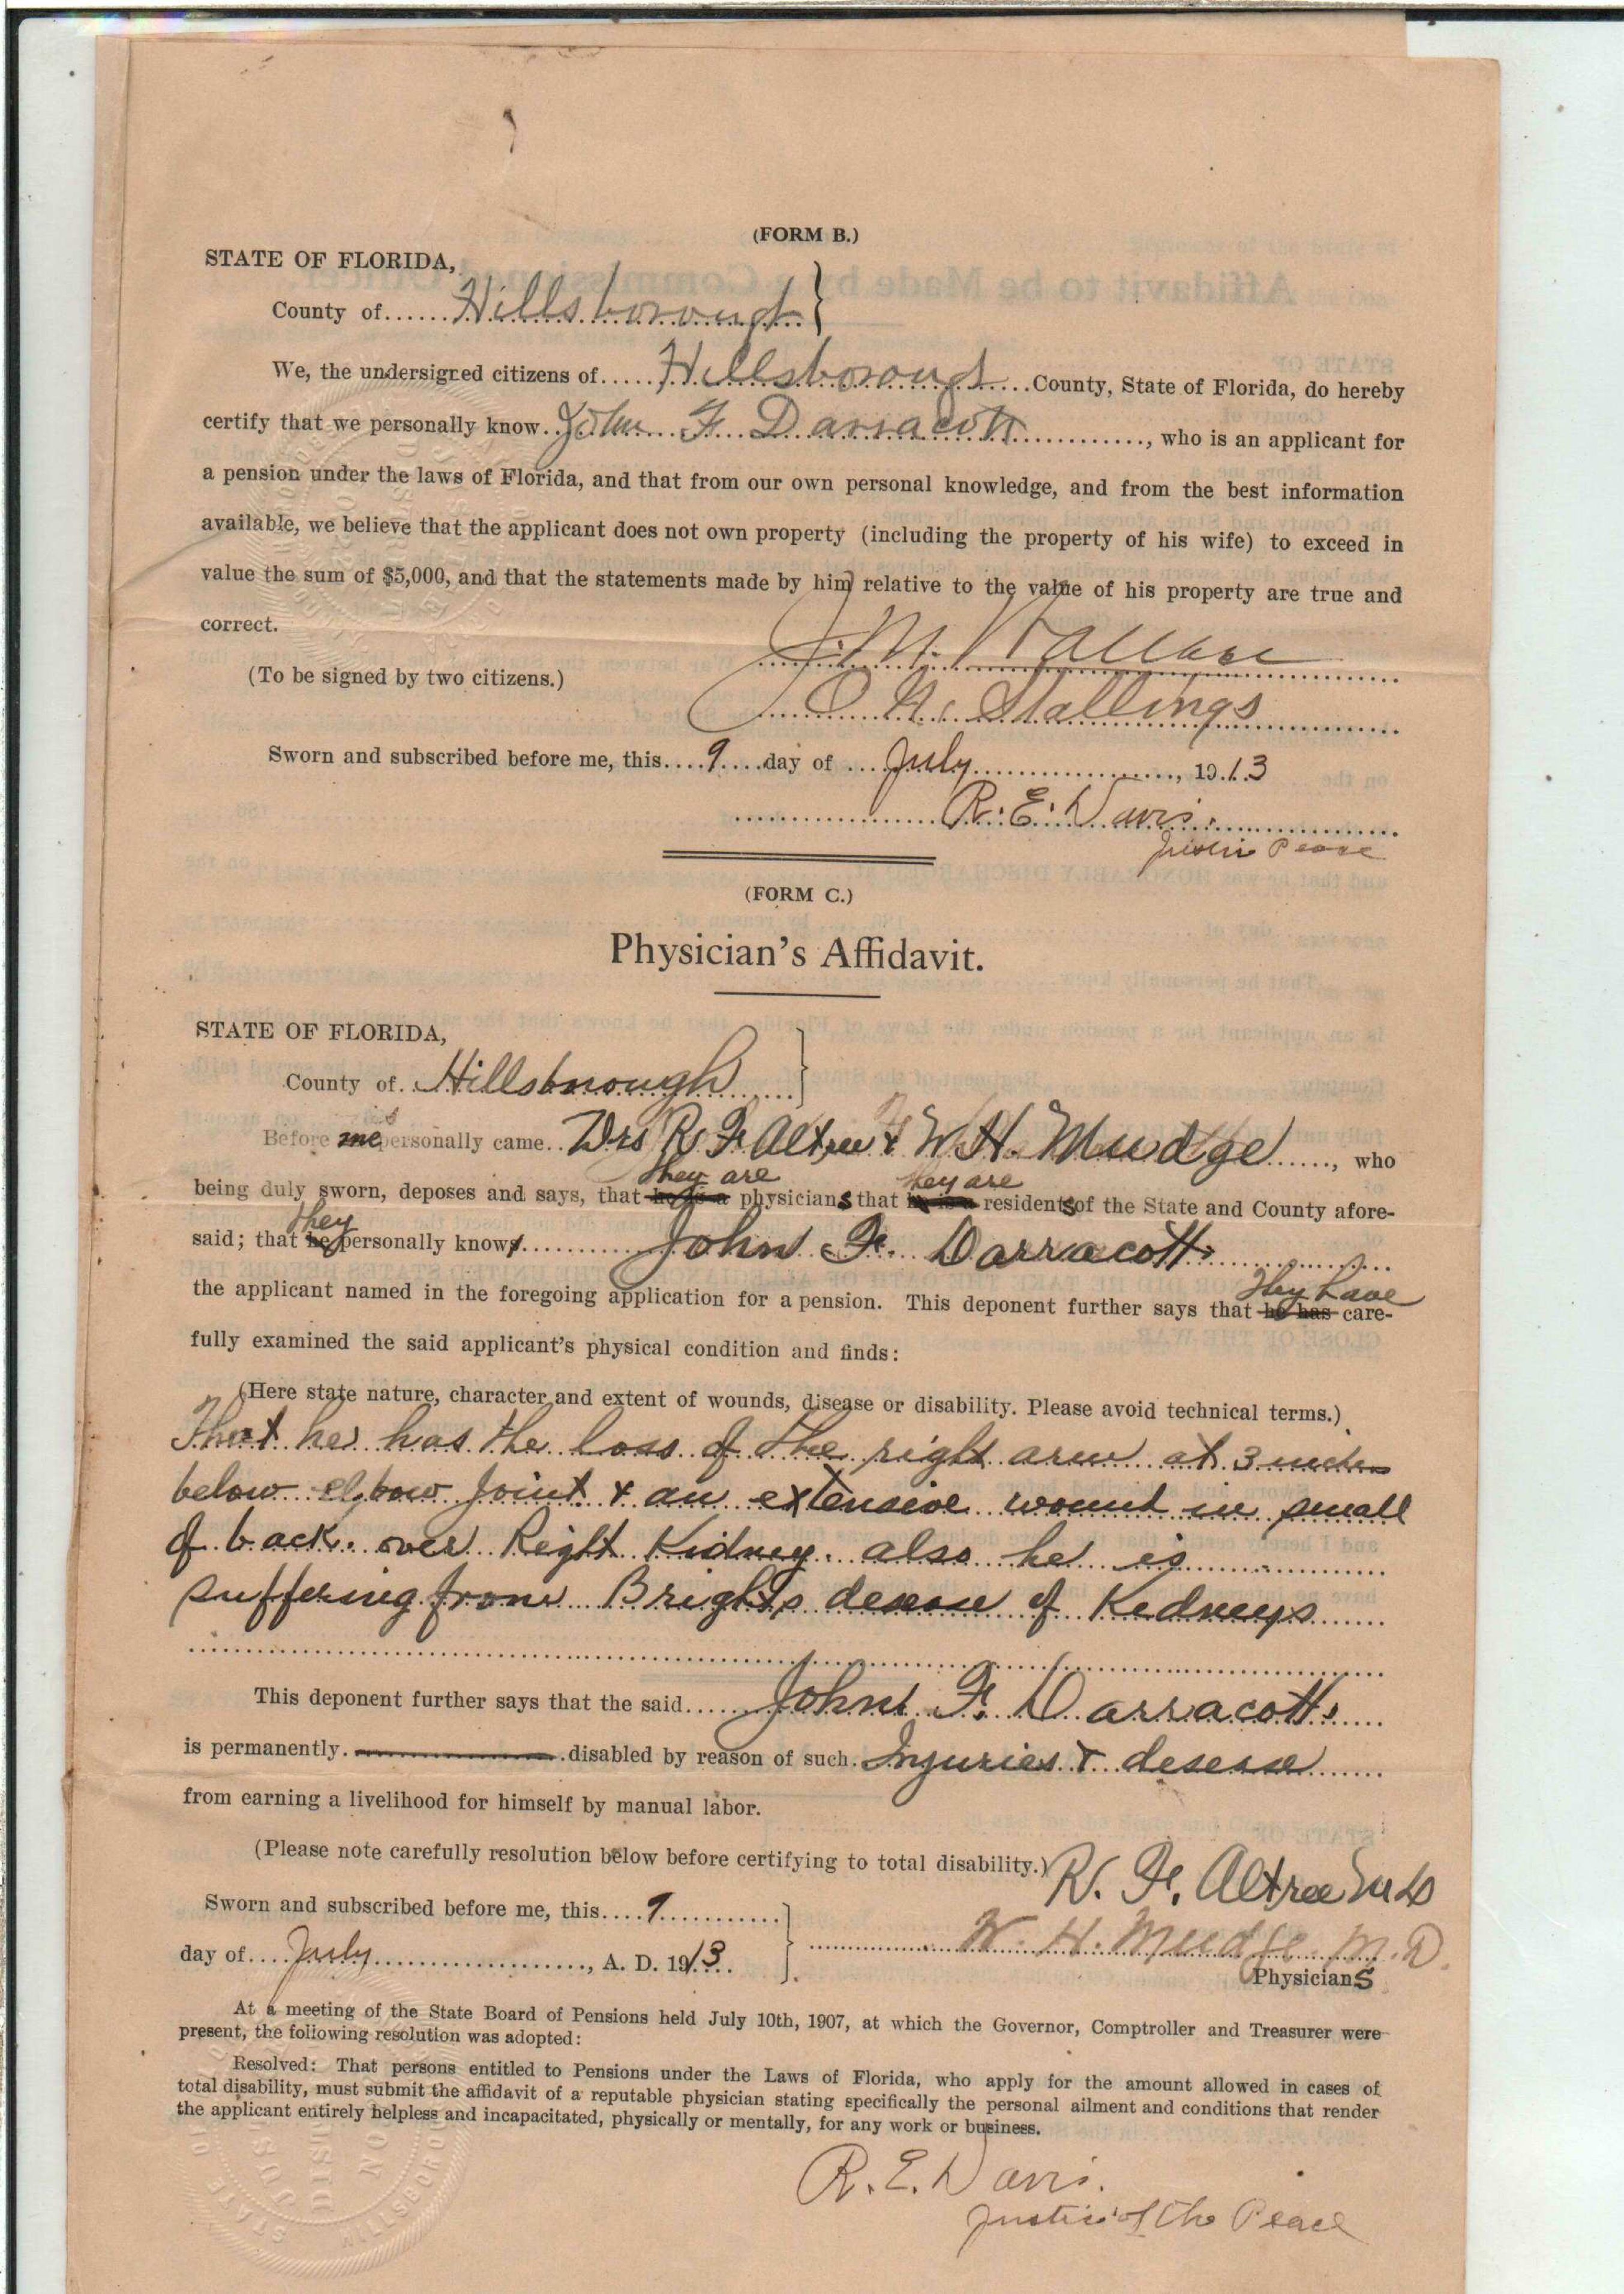 (FORM B.)
STATE OF FLORIDA,
County of Hillsborough
We, the undersigned citizens of Hillsborough County, State of Florida, do hereby
certify that we personally know John F. Darracott, who is an applicant for
a pension under the laws of Florida, and that from our own personal knowledge, and from the best information
available, we believe that the applicant does not own property (including the property of his wife) to exceed in
value the sum of $5,000, and that the statements made by him relative to the value of his property are true and
correct.
J. M. Wallace
(To be signed by two citizens.)
Stallings
Sworn and subscribed before me, this 9 day of July, 1913
R. E. Davis.
Justice Peace
(FORM C.)
Physician's Affidavit.
STATE OF FLORIDA,
County of Hillsborough
Before me personally came Drs R. F. Altree & W. H. Mudge, who
they are they are
being duly sworn, deposes and says, that he is a physicians that he is a residents of the State and County afore-
they
said; that he personally knows John F. Darracott
they have
the applicant named in the foregoing application for a pension. This deponent further says that he has care-
fully examined the said applicant's physical condition and finds:
(Here state nature, character and extent of wounds, disease or disability. Please avoid technical terms.)
That he has the loss of the right arm at 3 inches
below elbow joint & an extensive wount in small
of back. over Right Kidney. also he is
suffering from Brights desease of Kedneys
This deponent further says that the said John F. Darracott
is permanently disabled by reason of such Injuries & desease
from earning a livelihood for himself by manual labor.
(Please note carefully resolution below before certifying to total disability.)
R. F. Altree M D
Sworn and subscribed before me, this 9
W. H. Mudge M. D.
day of July, A. D. 1913
Physicians
At a meeting of the State Board of Pensions held July 10th, 1907, at which the Governor, Comptroller and Treasurer were
present, the following resolution was adopted:
Resolved: That persons entitled to Pensions under the Laws of Florida, who apply for the amount allowed in cases of
total disability, must submit the affidavit of a reputable physician stating specifically the personal ailment and conditions that render
the applicant entirely helpless and incapacitated, physically or mentally, for any work or business.
R. E. Davis.
Justice of the Peace